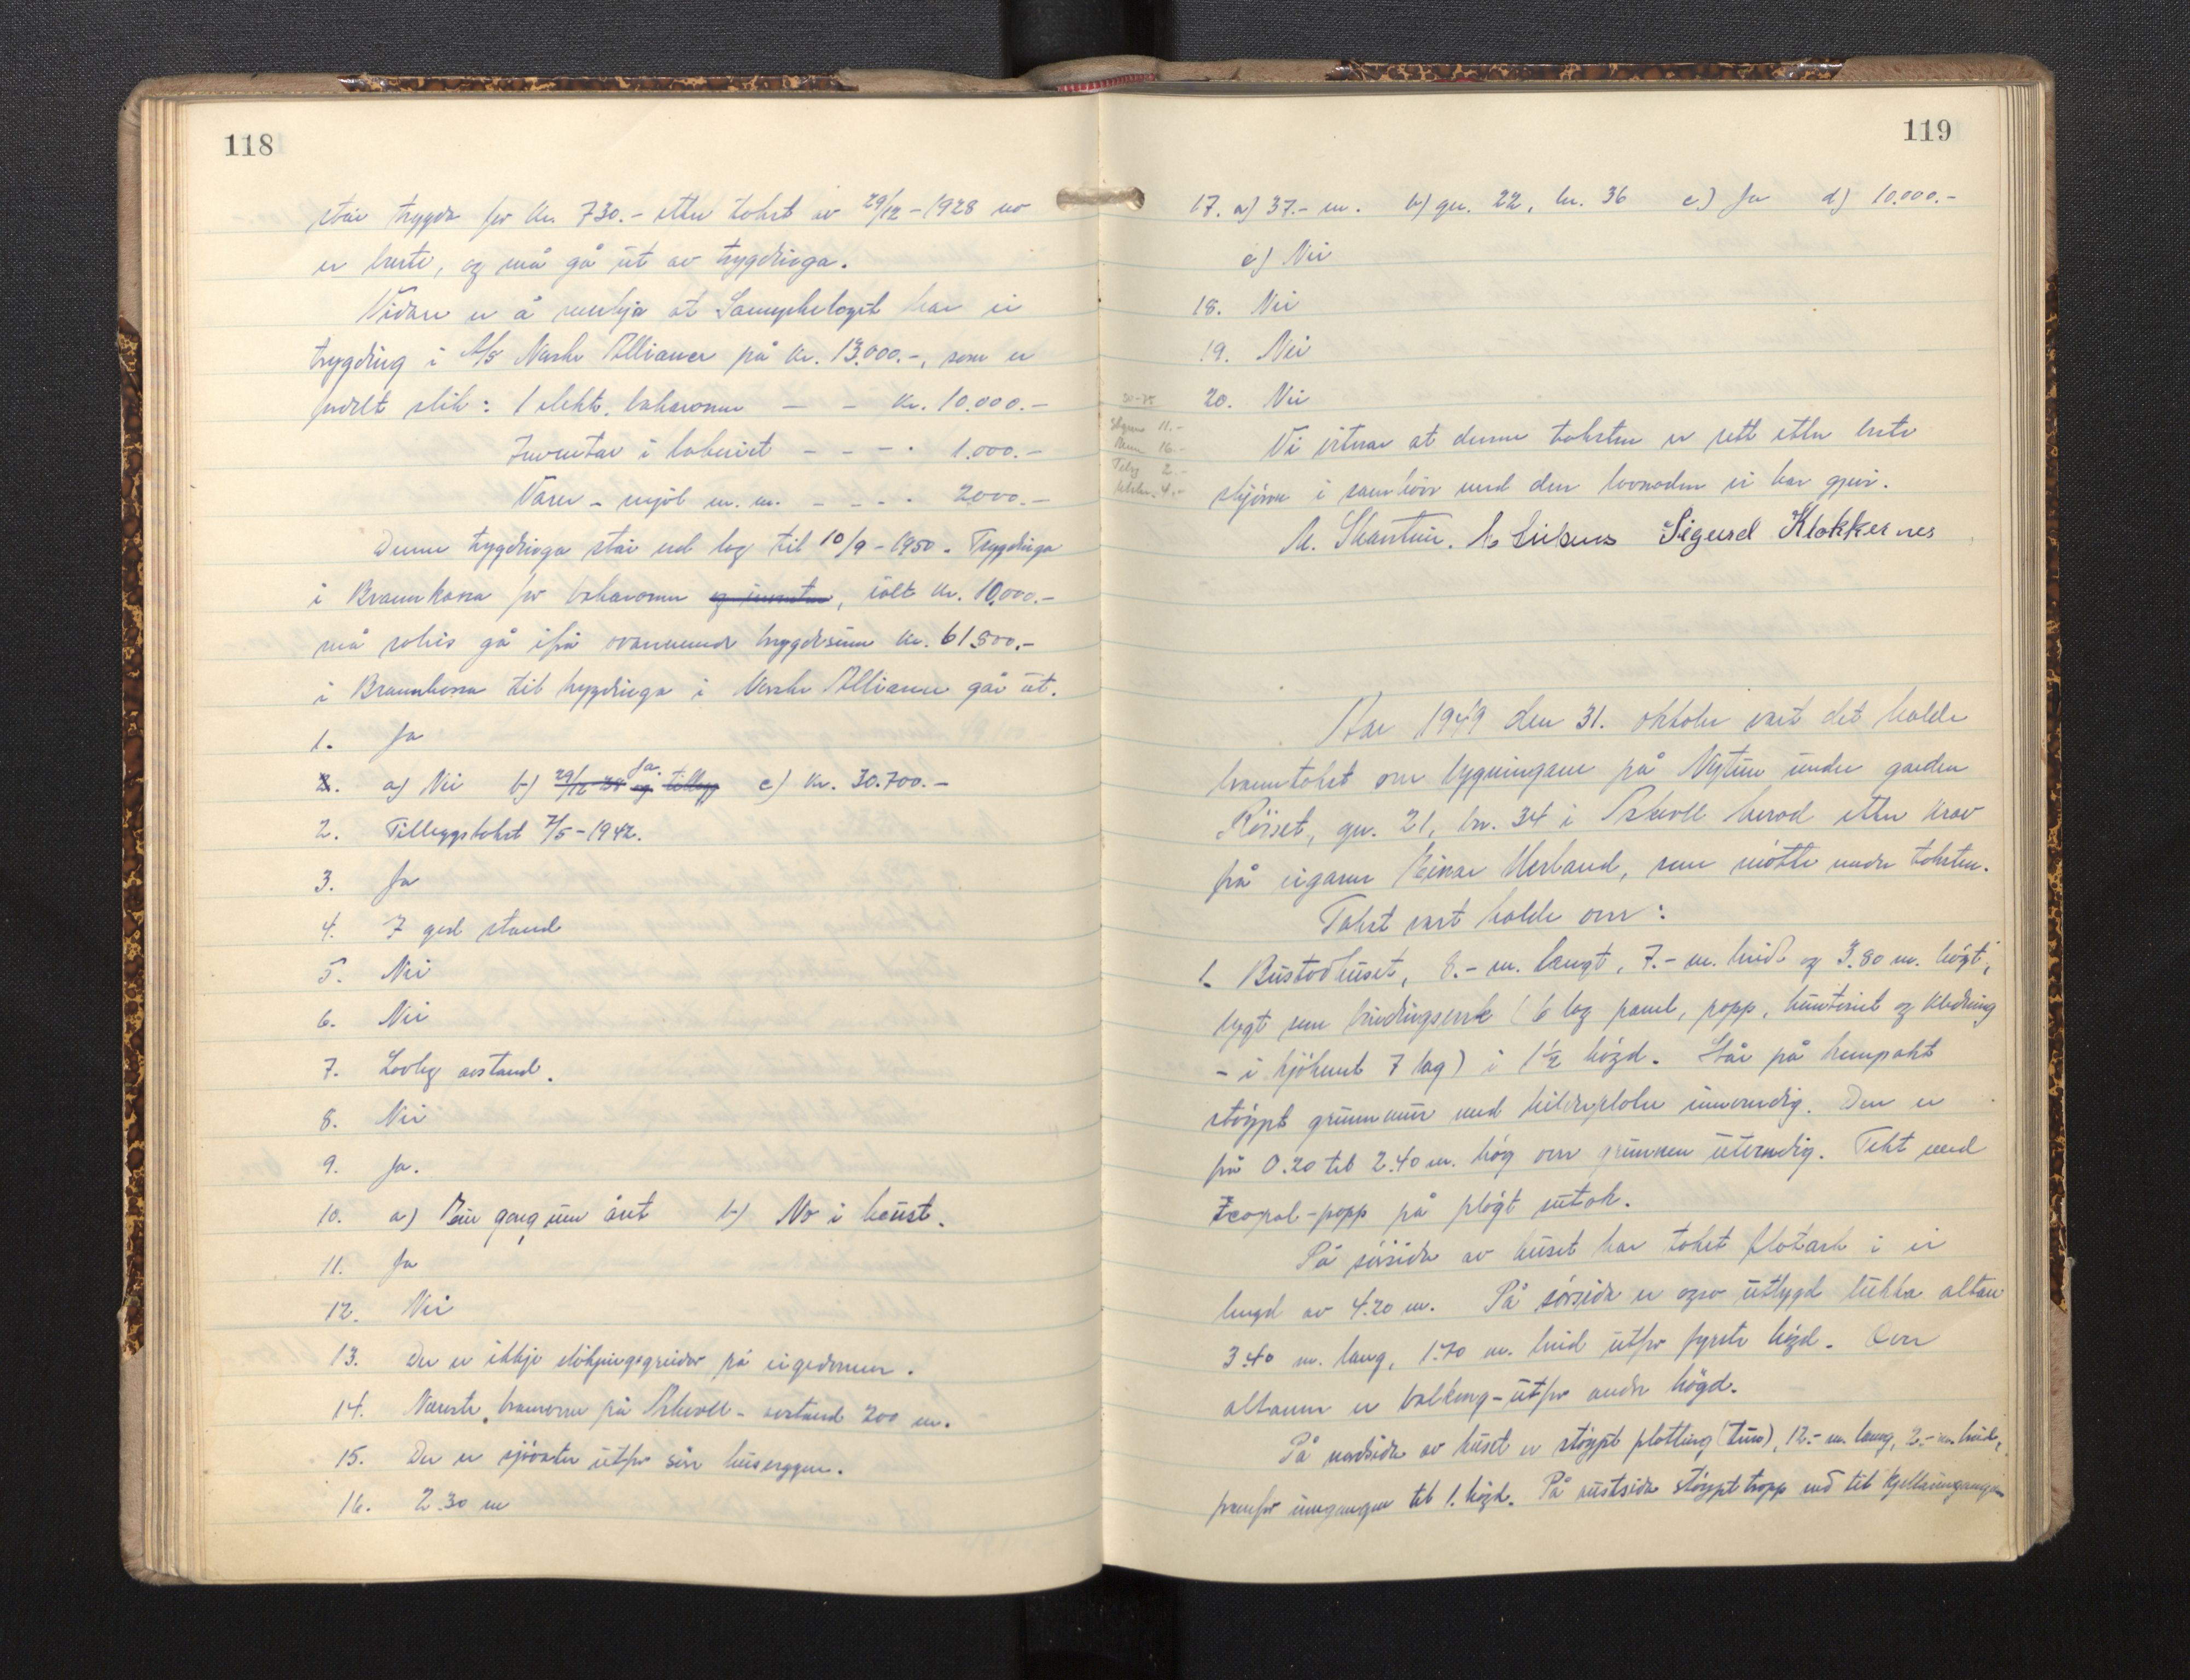 118
står trygda for kr. 730.- etter takst av 29/12-1928 no
er borte, og må gå ut av trygdinga.
Vidare er å merkja at Samyrkelaget har ei
trygding i A/S Norske Alliance på kr. 13.000.-, som er
fordelt slik: 1 elektr. bakaromn - - kr. 10.000.-
Inventar i bakeriet - - - . 1.000.-
Varer - mjöl m. m. - - - . 2000.-
Denne trygdinga står ved lag til 10/9-1950. Trygdinga
i Brannkassa for bakaromn og inventar, ialt kr. 10.000.-
må soleis gå ifrå ovannemnde trygdesum kr. 61.800.-
i Brannkassa til trygdinga i Norske Alliance går ut.
1. Ja
2. a) Nei b) 29/12-28 og tillegg Ja. c) Kr. 30.700.-
2. Tilleggstakst 7/5-1942.
3. Ja
4. I god stand
5. Nei
6. Nei
7. Lovleg avstand.
8. Nei
9. Ja.
10. a) Ein gong um året b) No i haust.
11. Ja
12. Nei
13. Der er ikkje slökjingsgreidor på eigedomen.
14. Næraste brannvern på Askvoll - avstand 200 m.
15. Der er sjövatn utfor sör huseggen.
16. 2.30 m
119
17. a) 37.- m. b) gn. 22, bn. 36 c) Ja d) 10.000.-
e) Nei
18. Nei
19. Nei
20. Nei
20-25
11.-
16.-
2.-
4.-
Vi vitnar at denne taksten er sett etter beste
skjönn i samhöve med den lovnaden vi har gjeve.
Sigurd Klokkernes
Aar 1949 den 31. oktober vart det halde
branntakst over bygningane på Nytun under garden
Röyset, gn. 21, bn. 34 i Askvoll herad etter krav
frå eigaren Einar Herland, som mötte under taksten.
Takst vart halde over:
1. Bustadhuset, 8.- m. langt, 7.- m. breidt og 3.80 m. högt,
bygt som bindingsverk (6 lag panel, papp, huntonit og kledning
- i kjökenet 7 lag) i 1½ högd. Står på kompakt
stöypt grunnmur med kilderplater innvendig. Den er
frå 0.20 til 2.40 m. hög over grunnen utvendig. Tekt med
Icopal-papp på plögt sutak.
På sörsida av huset har taket flatark i ei
lengd av 4.20 m. På sörsida er ogso utbygd lukka altan
3.40 m. lang, 1.70 m. breid utfor fyrste högd. Over
altanen er balkong - utfor andre högd.
På nordsida av huset er stöypt platting (tun), 12.- m. lang, 2.- m. breid,
framfor inngangen til 1. högd. På austsida stöypt trapp ned til kjellarinngangen